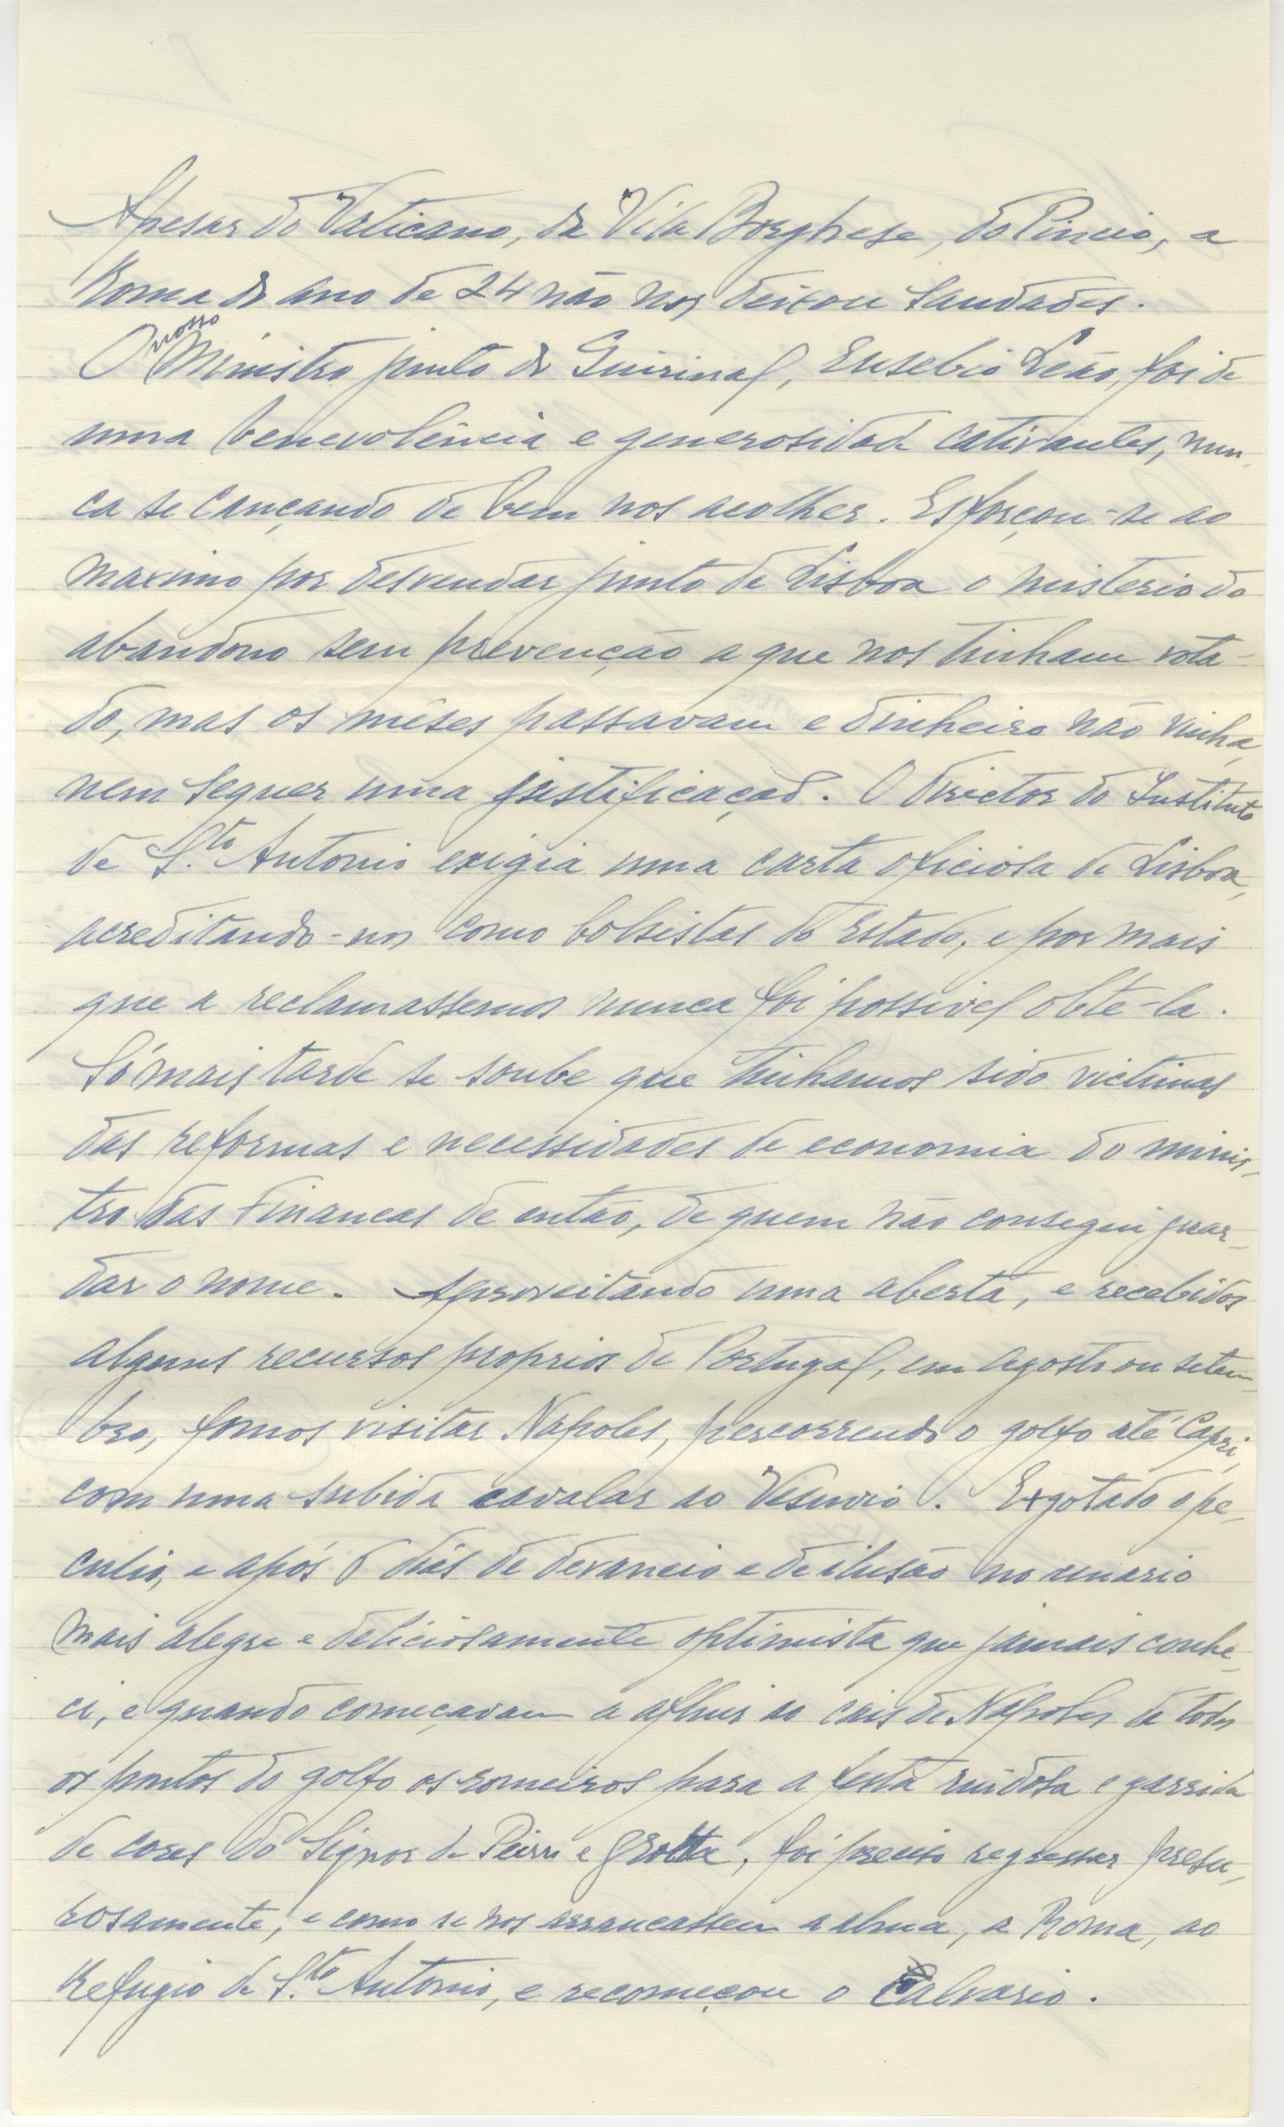 Apesar do Vaticano, da Vila Borghese, do Pincio, a
Roma do ano de 24 não nos deixou saudades.
O nosso Ministro junto do Quirinal, Eusebio Leão, foi de
uma benevolência e generosidade cativantes, nun-
ca se cançando de bem nos acolher. Esforçou-se ao
maximo por desvendar junto de Lisboa o misterio do
abandono sem prevenção a que nos tinham vota-
do, mas os mêses passavam e dinheiro não vinha,
nem sequer uma justificação. O director do Instituto
de S.to Antonio exigia uma carta oficiosa de Lisboa,
acreditando-nos como bolsistas do Estado, e por mais
que a reclamassemos nunca foi possivel obte-la.
Só mais tarde se soube que tinhamos sido victimas
das reformas e necessidades de economia do minis-
tro das Finanças de então, de quem não consegui guar-
dar o nome. Aproveitando uma aberta, e recebidos
alguns recursos proprios de Portugal, em Agosto ou setem-
bro, fomos visitar Napoles, percorrendo o golfo até Capri,
com uma subida cavalar ao Vesuvio. Exgotado o pe-
culio, e após 8 dias de devaneio e de ilusão no cenario
mais alegre e deliciosamente optimista que jamais conhe-
ci, e quando começavam a afluir ao cais de Napoles de todos
os pontos do golfo os romeiros para a festa ruidosa e garrida
de cores do Signor de Pierri e Grotta, foi preciso regressar presu-
rosamente, e como se nos arrancassem a alma, a Roma, ao
Refugio de S.to Antonio, e recomeçou o Calvario.